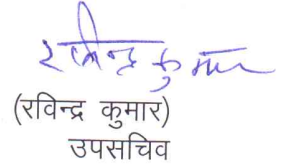 रविन्द्र कुमार
(रविन्द्र कुमार)
उपसचिव